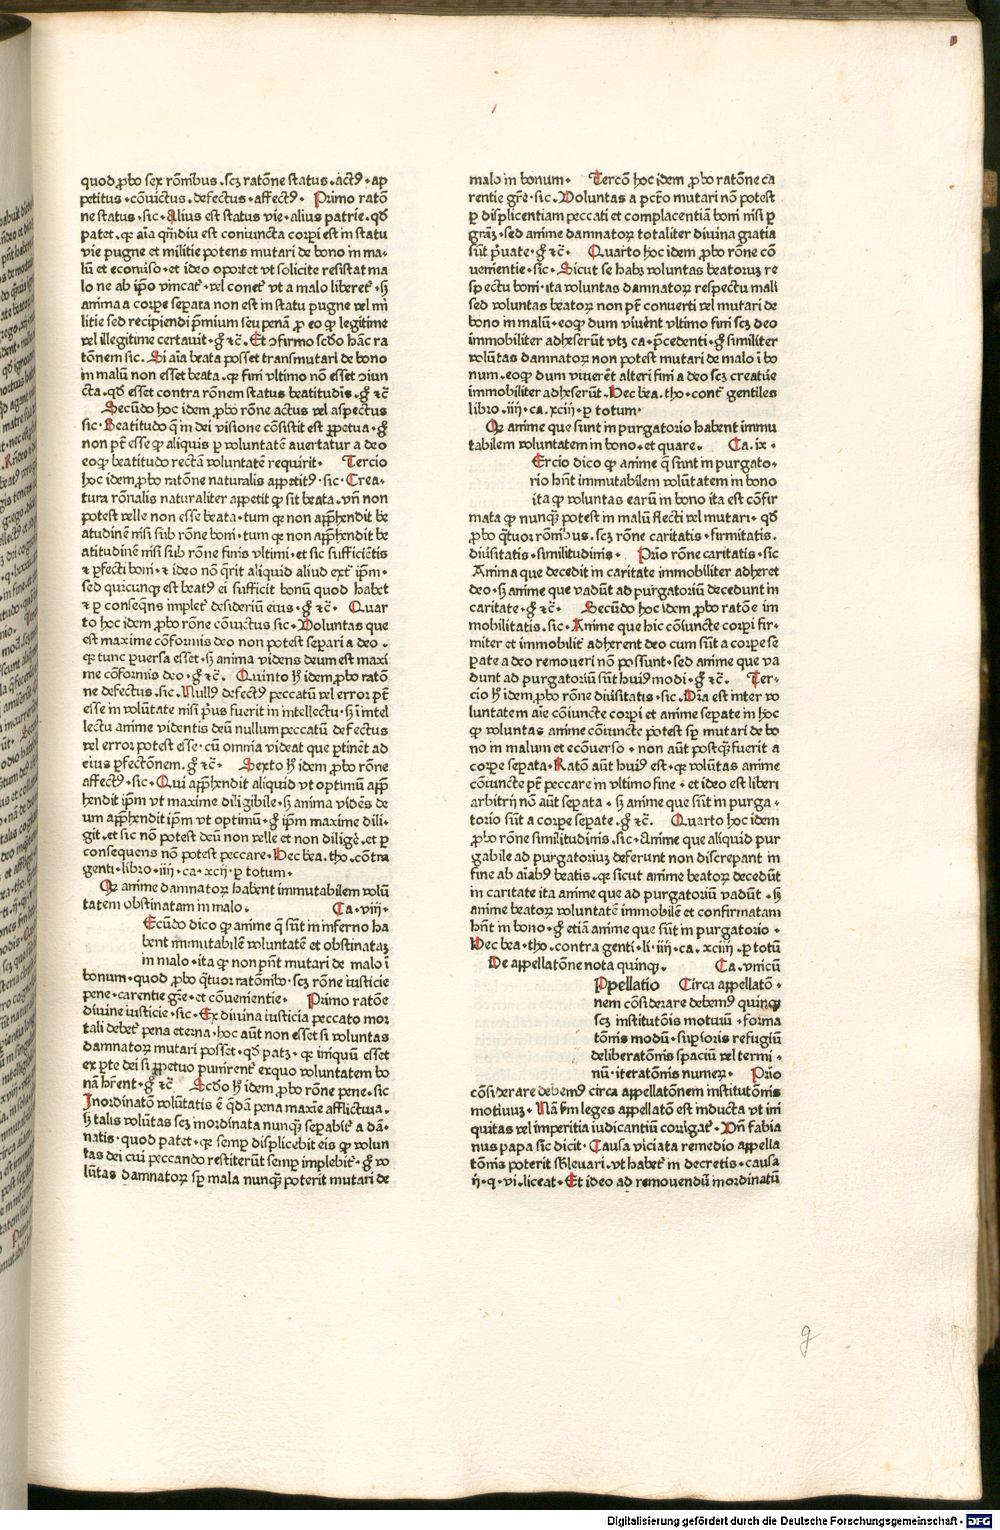 quod ꝓbo sex rõnibus .scʒ ratõne status .actꝰ .ap
petitus .cõuictus .defectus .affectꝰ. Primo ratõ
ne status .sic. Alius est status vie .alius patrie. qð
patet. qꝛ aīa qm̄diu est coniuncta corꝑi est in statu
vie pugne et militie potens mutari de bono in ma-
lũ et econuͥso .et ideo oportet vt solicite resistat ma
lo ne ab ip̄o vincat᷑ .vel conet᷑ vt a malo liberet᷑. ẜ
anima a corꝑe seꝑata non est in statu pugne vel mi
litie sed recipiendi p̄mium seu penã ꝓ eo ꝙ legitime
vel illegitime certauit .g̊ ⁊c̄. Et ↄfirmo scďo hãc ra
tõnem sic. Si aīa beata posset transmutari de bono
in malũ non esset beata .qꝛ fini vltimo nõ esset ↄiun
cta. qð esset contra rõnem status beatitudis. g̊ ⁊c̄
Secũdo hoc idem ꝓbo rõne actus vel aspectus
sic. Beatitudo q̄ in dei visione cõsistit est ꝑpetua. g̊
non pt̄ esse ꝙ aliquis ꝑ voluntatẽ auertatur a deo
eoqꝫ beatitudo rectã voluntatẽ requirit. Tercio
hoc idem ꝓbo ratõne naturalis appetitꝰ .sic. Crea-
tura rõnalis naturaliter appetit ꝙ sit beata. vñ non
potest velle non esse beata .tum qꝛ non app̄hendit be
atudinẽ nisi sub rõne boni .tum qꝛ non app̄hendit be
atitudinẽ nisi sub rõne finis vltimi .et sic sufficiẽtis
⁊ ꝑfecti boni. ⁊ ideo nõ q̄rit aliquid aliud ext᷑ ip̄m.
sed quicunqꝫ est beatꝰ ei sufficit bonũ quod habet
⁊ ꝑ conseq̄ns implet᷑ desideriũ eius .g̊ ⁊c̄. Quar
to hoc idem ꝓbo rõne cõuictus sic. Voluntas que
est maxime cõformis deo non potest seꝑari a deo.
qꝛ tunc ꝑuersa esset .ẜ anima videns deum est maxi
me cõformis deo .g̊ ⁊c̄. Quinto h̄ idem ꝓbo ratõ
ne defectus. sic. Nullꝰ defectꝰ peccatũ vel error pt̄
esse in volũtate nisi p̄us fuerit in intellectu .ẜ ī intel
lectu anime videntis deũ nullum peccatũ defectus
vel error potest esse. cũ omnia videat que ꝑtinẽt ad
eius ꝑfectõnem. g̊ ⁊c̄. Sexto h̄ idem ꝓbo rõne
affectꝰ .sic. Qui app̄hendit aliquid vt optimũ app̄
hendit ip̄m vt maxime diligibile .ẜ anima vidẽs de
um app̄hendit ip̄m vt optimũ. g̊ ip̄m maxime dili-
git. et sic nõ potest deũ non velle et non diligẽ. et ꝑ
consequens nõ potest peccare. Hec bea. tho .cõtra
genti .libro .iiii .ca .xcii. ꝑ totum.
Qꝛ anime damnatoꝝ habent immutabilem volũ
tatem obstinatam in malo. Ca .viii.
Ecũdo dico ꝙ anime q̄ sũnt in inferno ha
bent immutabilẽ voluntatẽ et obstinataʒ
in malo .ita ꝙ non pn̄t mutari de malo ī
bonum .quod ꝓbo q̈tuor ratõnibͦ. scʒ rõne iusticie
pene .carentie gr̄e .et cõuenientie. Primo ratõe
diuine iusticie .sic. Ex diuina iusticia peccato mor
tali debet᷑ pena eterna .hoc aũt non esset si voluntas
damnatoꝝ mutari posset .qð patʒ. qꝛ iniquũ esset
ex ꝑte dei si ꝑpetuo punirent᷑ exquo voluntatem bo
nã hr̄ent .g̊ ⁊c̄ Scďo h̄ idem ꝓbo rõne pene .sic
Inordinatõ volũtatis ẽ q̈dã pena maxie afflictiua.
ẜ talis volũtas scʒ inordinata nunqꝫ seꝑabit᷑ a dã-
natis .quod patet .qꝛ semꝑ displicebit eis ꝙ volun
tas dei cui peccando restiterũt semꝑ implebit᷑. g̊ vo
lũtas damnatoꝝ sꝑ mala nunqꝫ poterit mutari de
malo in bonum. Tercõ hoc idem ꝓbo ratõne ca
rentie gr̄e .sic. Voluntas a pctõ mutari nõ potest
ꝑ displicentiam peccati et complacentiã boni nisi ꝑ
gr̄aʒ .sed anime damnatoꝝ totaliter diuina gratia
sũt p̄uate .g̊ ⁊c̄. Quarto hoc idem ꝓbo rõne cõ
uenientie .sic. Sicut se habʒ voluntas beatoruʒ re
spectu boni .ita voluntas damnatoꝝ respectu mali
sed voluntas beatoꝝ non pn̄t conuerti vel mutari de
bono in malũ .eoqꝫ dum viuẽnt vltimo fini scʒ deo
immobiliter adheserũt vtʒ ca. p̄cedenti .g̊ similiter
volũtas damnatoꝝ non potest mutari de malo ī bo
num .eoqꝫ dum viuerẽt alteri fini a deo scʒ creatu̇e
immobiliter adheserũt. Hec bea. tho .cont᷑ gentiles
libro .iiii .ca .xciii .ꝑ totum.
Qꝛ anime que sunt in purgatorio habent immu
tabilem voluntatem in bono .et quare. Ca .ix.
Ercio dico ꝙ anime q̄ sũnt in purgato-
rio hn̄t immutabilem volũtatem in bono
ita ꝙ voluntas earũ in bono ita est cõfir
mata ꝙ nunqꝫ potest in malũ flecti vel mutari. qð
ꝓbo q̈tuor rõnibus. scʒ rõne caritatis .firmitatis.
diuͥsitatis .similitudinis. Prīo rõne caritatis .sic
Anima que decedit in caritate immobiliter adheret
deo .ẜ anime que vadũt ad purgatoriũ decedunt in
caritate .g̊ ⁊c̄. Secũdo hoc idem ꝓbo ratõne im
mobilitatis .sic. Anime que hic cõiuncte corꝑi fir-
miter et immobilit᷑ adherent deo cum sũnt a corꝑe se
ꝑate a deo remoueri nõ possunt .sed anime que va
dunt ad purgatoriũ sũnt huiꝰmodi .g̊ ⁊c̄. Ter-
cio h̄ idem ꝓbo rõne diuͥsitatis .sic. Dr̄ia est inter vo
luntatem aīe cõiuncte corꝑi et anime seꝑate in hoc
ꝙ voluntas anime cõiuncte potest sꝑ mutari de bo
no in malum et ecõuerso .non aũt postqꝫ fuerit a
corꝑe seꝑata. Ratõ aũt huiꝰ est .qꝛ volũtas anime
cõiuncte pt̄ peccare in vltimo fine .et ideo est liberi
arbitrij nõ aũt seꝑata .ẜ anime que sũt in purga-
torio sũt a corꝑe seꝑate. g̊ ⁊c̄. Quarto hoc idem
ꝓbo rõne similitudinis .sic. Anime que aliquid pur
gabile ad purgatoriuʒ deferunt non discrepant in
fine ab aīabꝰ beatis. qꝛ sicut anime beatoꝝ decedũt
in caritate ita anime que ad purgatoriũ vadũt. ẜ
anime beatoꝝ voluntatem immobilẽ et confirmatam
hn̄t in bono .g̊ etiã anime que sũt in purgatorio.
Hec bea. tho. contra genti. li. iiii .ca .xciiii .ꝑ totũ
De appellatõne nota quinqꝫ. Ca .vnicũ
Ppellatio Circa appellatõ-
nem cõsiderare debemꝰ quinqꝫ
scʒ institutõis motiuũ .forma
tõnis modũ .suꝑioris refugiũ
deliberatõnis spaciũ vel termi-
nũ .iteratõnis numeꝝ. Prīo
cõsiderare debemꝰ circa appellatõnem institutõnis
motiuuʒ. Nã ẜm leges appellatõ est inducta vt ini
quitas vel imperitia iudicantiũ corrigat᷑. Vñ fabia
nus papa sic dicit. Causa viciata remedio appella
tõnis poterit sb̄leuari .vt habet᷑ in decretis .causa
ii .q .vi .liceat. Et ideo ad remouendũ inordinatũ
g
Digitalisierung gefördert durch die Deutsche Forschungsgemeinschaft - DFG